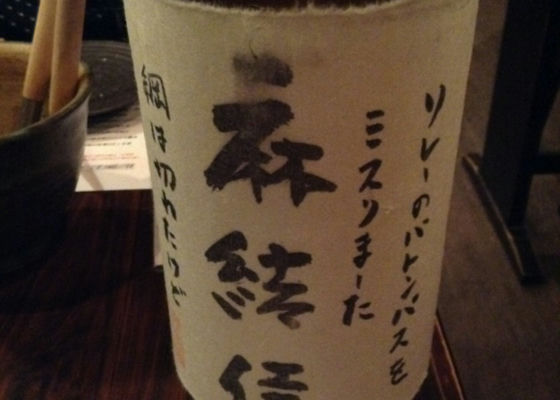 リレーのバトンパスを
ミスりまーた
麻結
綱は切れたけど